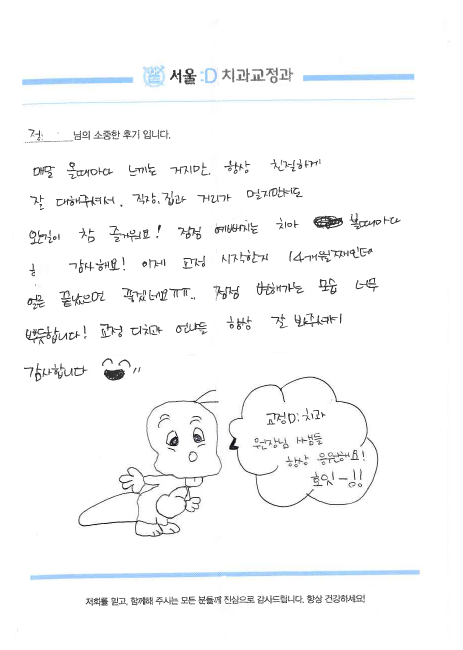 서울:D 치과교정과
정 님의 소중한 후기 입니다.
매달 올때마다 느끼는 거지만, 항상 친절하게
잘 대해주셔서, 직장, 집과 거리가 멀지만서도
오는길이 참 즐거워요! 점점 예뻐지는 치아 볼때마다
감사해요! 이제 교정 시작한지 14개월째인데
얼른 끝났으면 좋겠네요ㅠㅠ.. 점점 변해가는 모습 너무
뿌듯합니다! 교정 디치과 언니들 항상 잘 봐주셔서
감사합니다
교정D:치과
원장님 쌤들
항상 응원해요!
효잇~!!
저희를 믿고, 함께해 주시는 모든 분들께 진심으로 감사드립니다. 항상 건강하세요!